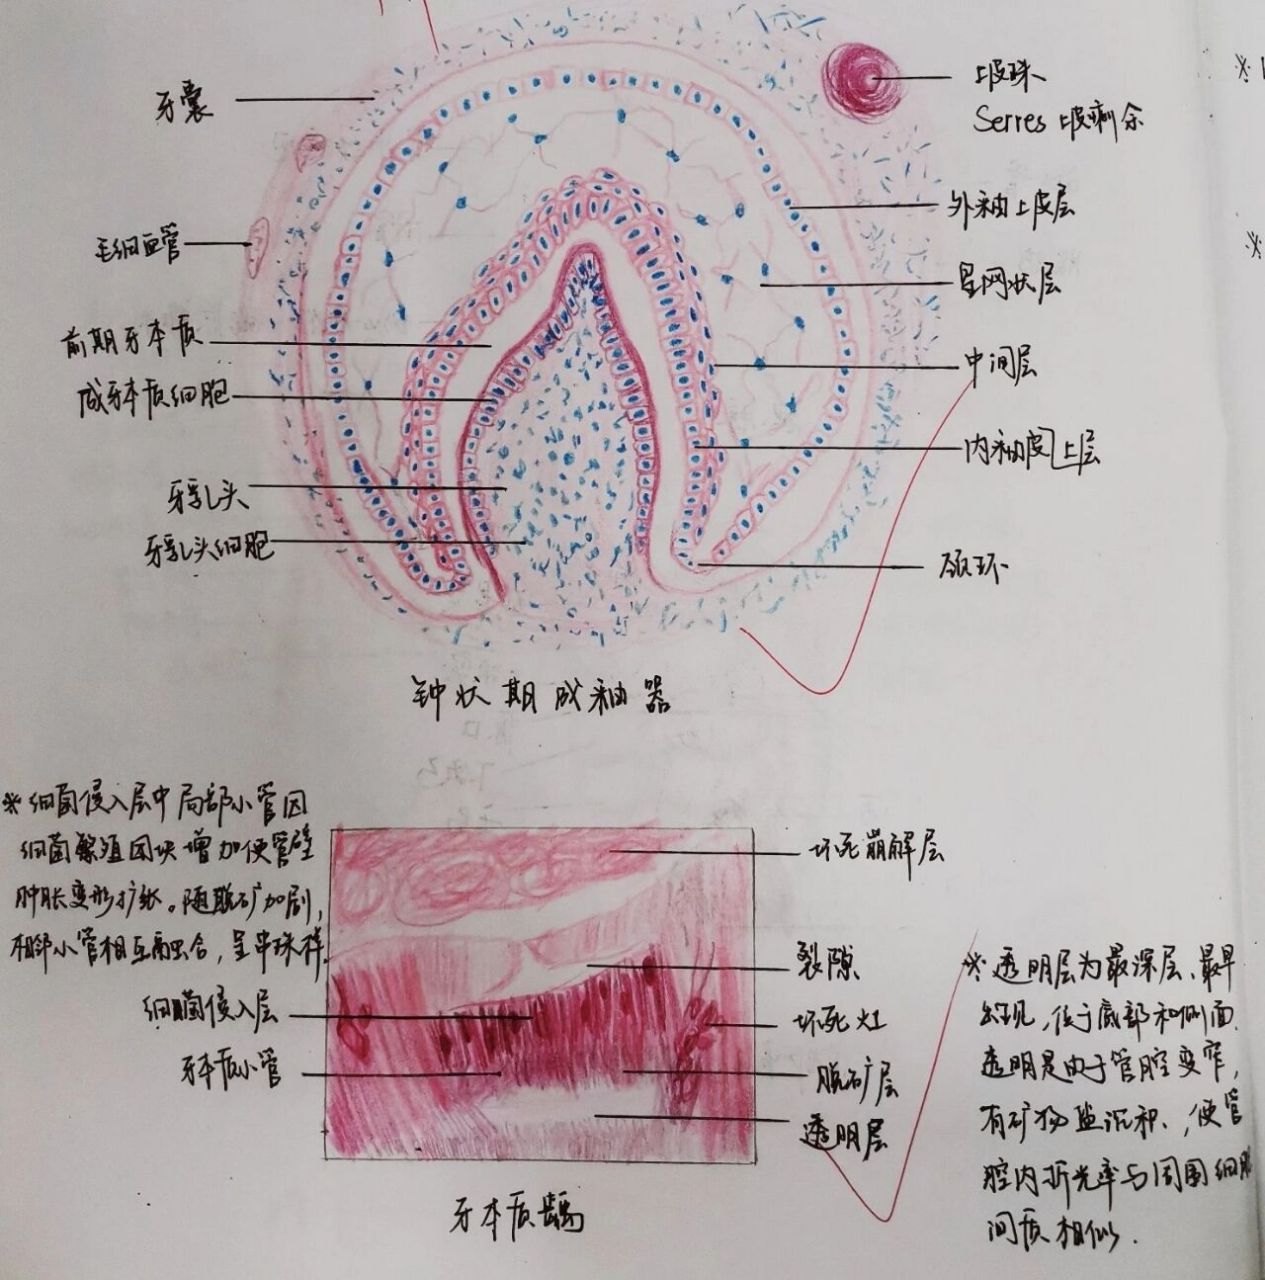 牙囊
毛细血管
前期牙本质
成牙本质细胞
牙乳头
牙乳头细胞
上皮珠
Serres上皮剩余
外釉上皮层
星网状层
中间层
内釉皮上层
颈环
钟状期成釉器
※细菌侵入层中局部小管因
细菌繁殖团块增加使管壁
肿胀变形扩张。随脱矿加剧,
相邻小管相互融合,呈串珠样.
细菌侵入层
牙本质小管
坏死崩解层
裂隙
坏死灶
脱矿层
透明层
※透明层为最深层、最早
出现,位于底部和侧面.
透明是由于管腔变窄,
有矿物盐沉积、,使管
腔内折光率与周围细胞
间质相似.
牙本质龋
※
※